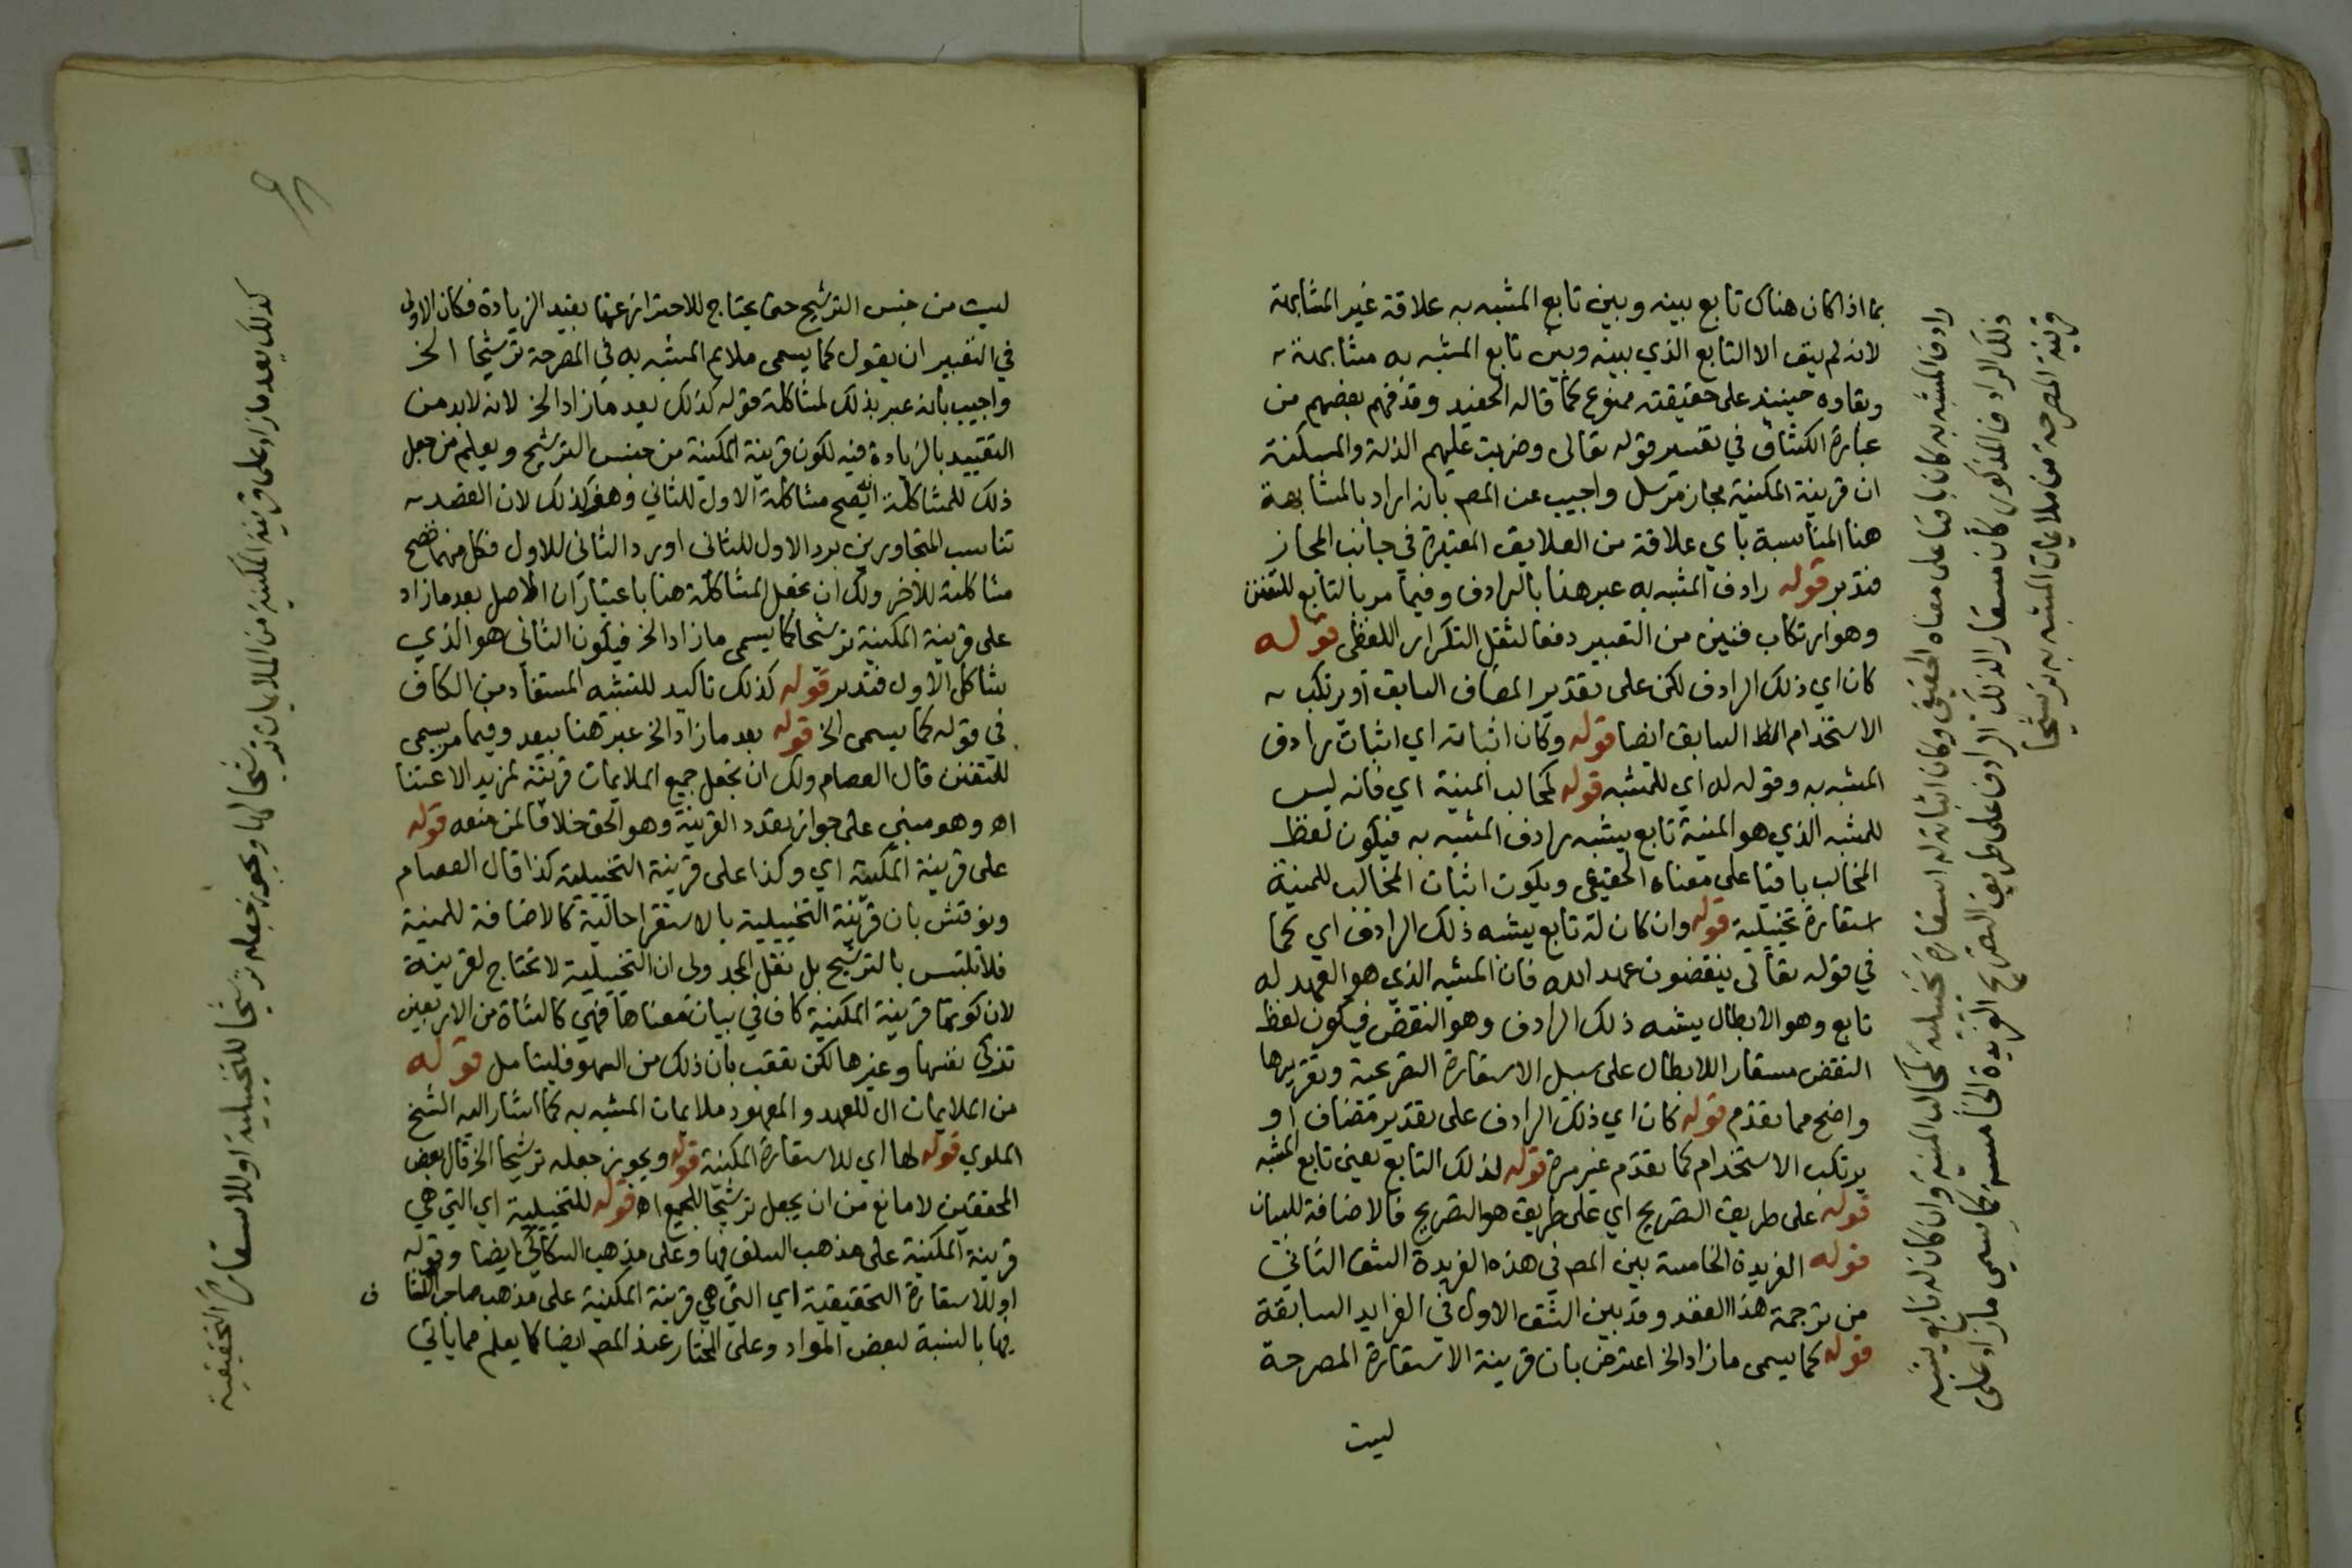 بما اذا كان هناك تابع بينه وبين تابع المشبه به علاقة غير المشابهة
لانه لم يبق الا التابع الذي بينه وبين تابع المشبه به مشابهة
وبقاوه حينيذ على حقيقته ممنوع كما قاله الحفيد وقد فهم بعضهم من
عبارة الكشاف في تفسير قوله تعالى وضربت عليهم الذلة والمسكنة
ان قرينة المكنية مجاز مرسل واجيب عن المص بانه اراد بالمشابهة
هنا المناسبة باي علاقة من العلايق المعتبرة في جانب المجاز
فتدبر قوله رادف المشبه به عبر هنا بالرادف وفيما مر بالتابع للتفنن
وهو ارتكاب فنين من التعبير دفعا لثقل التكرار اللفظى قوله
كان اي ذلك الرادف لكن على تقدير المضاف السابق او يرتكب
الاستخدام السابق ايضا قوله وكان اثباته اي اثبات رادف
المشبه به وقوله له اي للمشبه قوله كمخالب المنية اي فانه ليس
للمشبه الذي هو المنية تابع يشبه رادف المشبه به فيكون لفظ
المخالب باقيا على معناه الحقيقي ويكون اثبات المخالب للمنية
استعارة تخييلية قوله وان كان له تابع يشبه ذلك الرادف اي كما
في قوله تعالى ينقضون عهد الله فان المشبه الذي هو العهد له
تابع وهو الابطال يشبه ذلك الرادف وهو النقض فيكون لفظ
النقض مستعار اللابطال على سبيل الاستعارة التصريحية وتقريرها
واضح مما تقدم قوله كان اي ذلك الرادف على تقدير مضاف او
يرتكب الاستخدام كما تقدم غير مرة قوله لذلك التابع يعنى تابع المشبه
قوله على طريق التصريح اي على طريق هو التصريح فالاضافة للبيان
قوله الفريدة الخامسة بين المص في هذه الفريدة الشق الثاني
من ترجمة هذا العقد وقد بين الشق الاول في الفرايد السابقة
قوله كما يسمى ما زاد الخ اعترض بان قرينة الاستعارة المصرحة
ليست
رادف المشبه به كان باقيا على معناه الحقيقي وكان اثباته له استعارة تخييلية كمخالب المنية وان كان له تابع يشبه
ذلك الرادف المذكور كان مستعارا لذلك الرادف على طريق التصريح الفريدة الخامسة كما يسمى ما زاد على
قرينة المصرحة من ملايمات المشبه به ترشيحا
ليست من جنس الترشيح حتى يحتاج للاحتراز عنها بقيد الزيادة فكان الاولى
في التعبير ان يقول كما يسمى ملايم المشبه به في المصرحة ترشيحا الخ
واجيب بانه عبر بذلك لمشاكلة قوله كذلك يعد ما زاد الخ لانه لابد من
التقييد بالزيادة فيه لكون قرينة المكنية من جنس الترشيح ويعلم من جعل
ذلك للمشاكلة انه يصح مشاكلة الاول للثاني وهو كذلك لان القصد
تناسب المتجاورين برد الاول للثاني او رد الثاني للاول فكل منهما يصح
مشاكلته للاخر ولك ان تجعل المشاكلة هنا باعتبار ان الاصل يعد ما زاد
على قرينة المكنية ترشيحا كما يسمى ما زاد الخ فيكون الثاني هو الذي
شاكل الاول فتدبر قوله كذلك تاكيد للتشبه المستفاد من الكاف
في قوله كما يسمى الخ قوله يعد ما زاد الخ عبر هنا بيعد وفيما مر بيسمى
للتفنن قال العصام ولك ان تجعل جميع الملايمات قرينة لمزيد الاعتنا
اه وهو مبني على جواز تعدد القرينة وهو الحق خلافا لمن منعه قوله
على قرينة المكنية اي وكذا على قرينة التخييلية كذا قال العصام
ونوقش بان قرينة التخييلية بالاستقرا حالية كالاضافة للمنية
فلا تلتبس بالترشيح بل نقل المجدولى ان التخييلية لا تحتاج لقرينة
لان كونها قرينة المكنية كاف في بيان معناها فهي كالشاة من الاربعين
تزكي نفسها وغيرها لكن تعقب بان ذلك من السهو فليتامل قوله
من الملايمات ال للعهد والمعهود ملايمات المشبه به كما اشار اليه الشيخ
الملوي قوله لها اي للاستعارة المكنية قوله ويجوز جعله ترشيحا الخ قال بعض
المحققين لا مانع من ان يجعل ترشيحا للجميع اه قوله للتخييلية اي التي هي
قرينة المكنية على مذهب السلف فيها وعلى مذهب السكاكي ايضا وقوله
او للاستعارة التحقيقية اي التي هي قرينة المكنية على مذهب صاحب الكشا ف
فيها بالنسبة لبعض المواد وعلى المختار عند المص ايضا كما يعلم مما ياتي
كذلك يعد ما زاد على قرينة المكنية من الملايمات ترشيحا لها ويجوز جعله ترشيحا للتخييلية او للاستعارة
التحقيقية